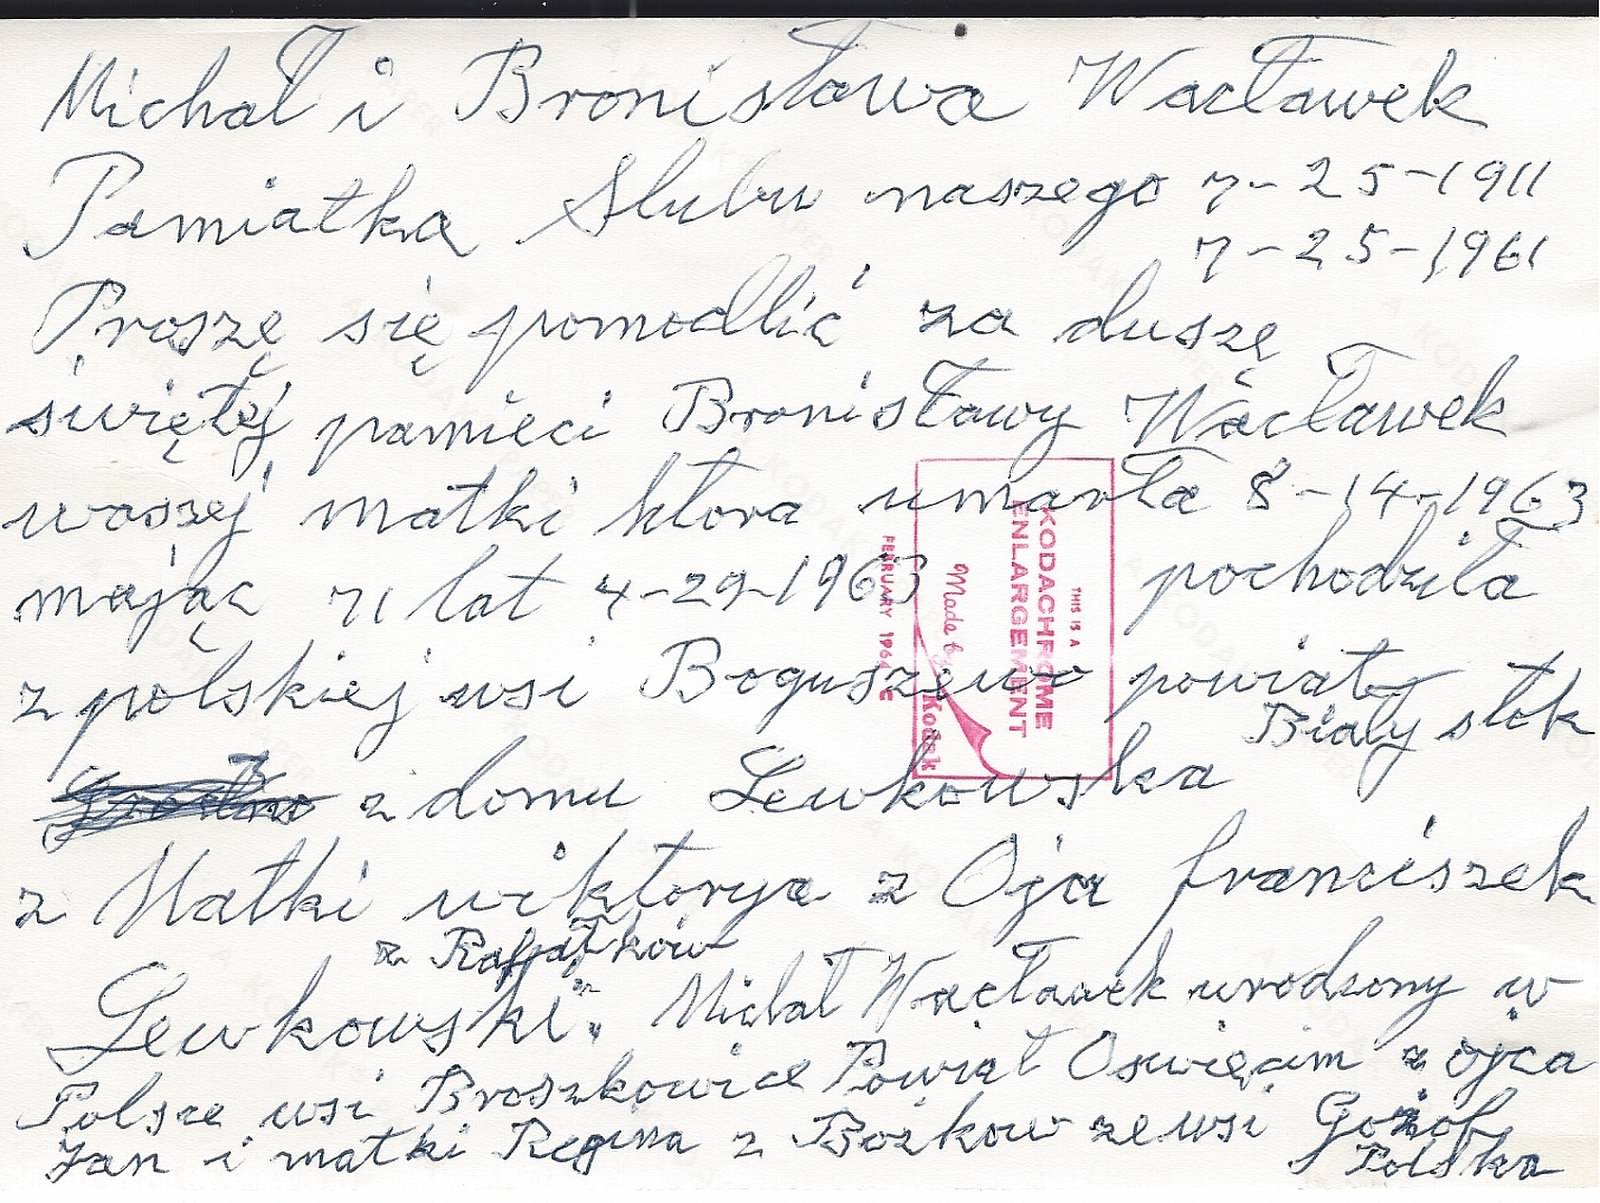 Michał i Bronisława Wacławek
Pamiatka Slubu naszego 7-25-1911
7-25-1961
Proszę się pomodlić za duszę
świętej pamieci Bronisławy Wacławek
waszej matki ktora umarła 8-14-1963
mając 71 lat 4-29-1963 pochodziła
z polskiej wsi Boguszewo powiaty
Bialy stok
z domu Lewkowska
z Matki wiktorya z Oja franciszek
z Rafałków
Lewkowski. Michał Wacławek urodzony w
Polsce wsi Broszkowice Powiat Oswięcim z ojca
Jan i matki Regina z Bożkow ze wsi
Polska
THIS IS A
KODACHROME
ENLARGEMENT
Made by Kodak
FEBRUARY 1964